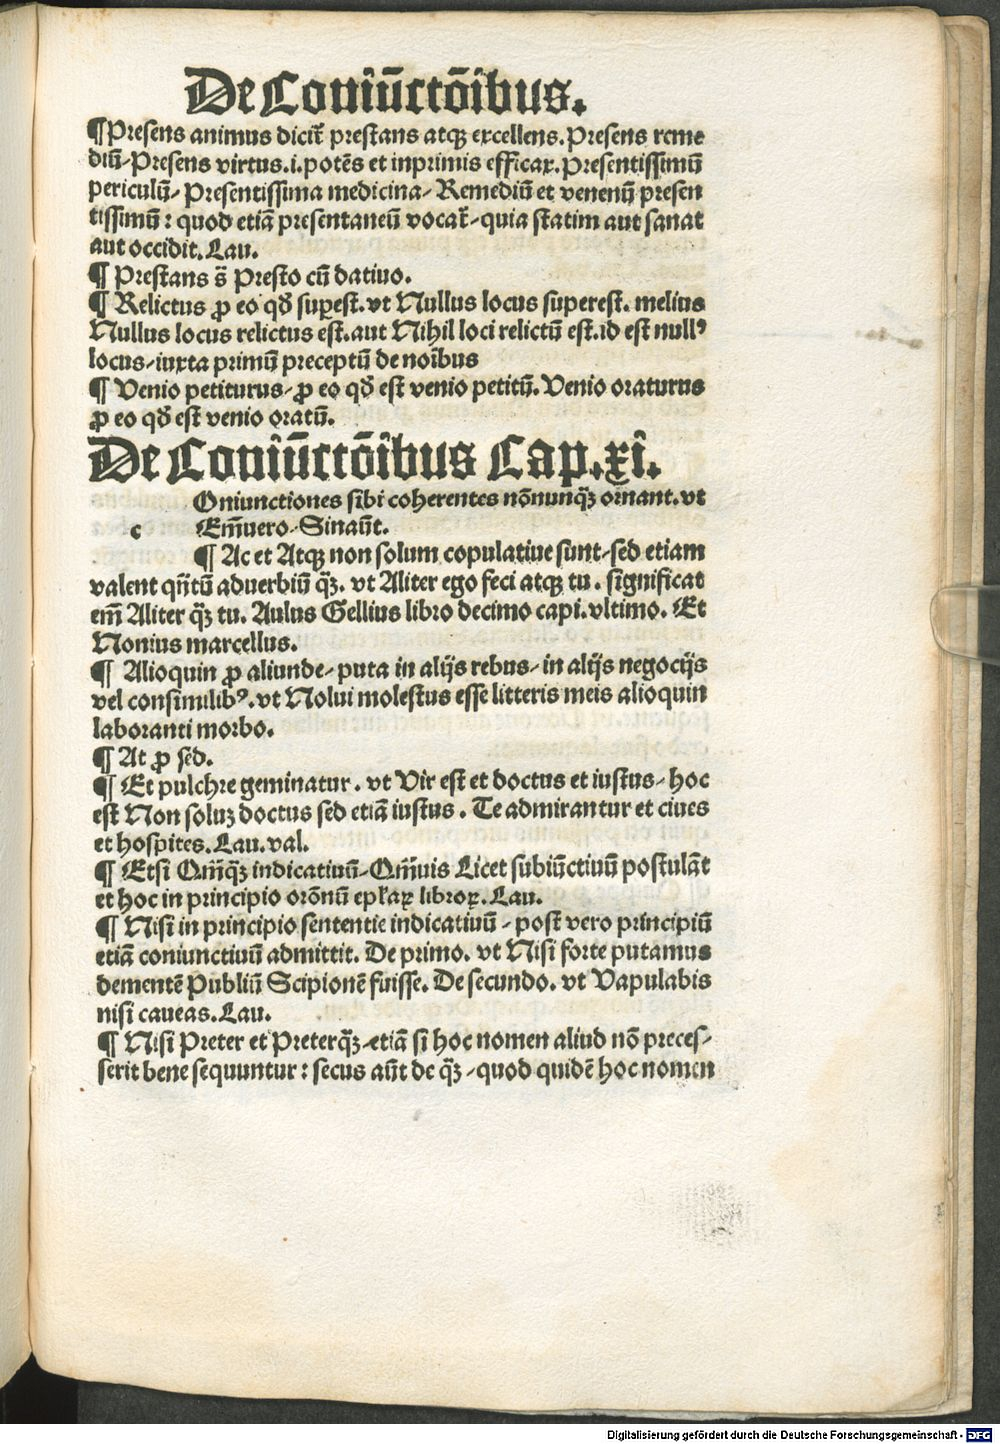 De Coniūctōibus.
¶ Presens animus dicit̄ prestans atqꝫ excellens. Presens reme
diū. Presens virtus .i. potēs et inprimis efficax. Presentissimū
periculū. Presentissima medicina. Remediū et venenū presen
tissimū: quod etiā presentaneū vocat̄. quia statim aut sanat
aut occidit. Lau.
¶ Prestans s̄ Presto cū datiuo.
¶ Relictus ꝓ eo qđ suꝑest. vt Nullus locus superest. melius
Nullus locus relictus est. aut Nihil loci relictū est. id est nullꝰ
locus. iuxta primū preceptū de noībus
¶ Venio petiturus. ꝓ eo qđ est venio petitū. Venio oraturus
ꝓ eo qđ est venio oratū.
De Coniūctōibus Cap. xi.
c Oniunctiones sibi coherentes nōnunqꝫ̄ ornant. vt
Em̄uero. Sinaūt.
¶ Ac et Atqꝫ non solum copulatiue sunt. sed etiam
valent qn̄tū aduerbiū qꝫ̄. vt Aliter ego feci atqꝫ tu. significat
em̄ Aliter qꝫ̄ tu. Aulus Gellius libro decimo capi. vltimo. Et
Nonius marcellus.
¶ Alioquin ꝓ aliunde. puta in alijs rebus. in alijs negocijs
vel consimilibꝰ. vt Nolui molestus esse litteris meis alioquin
laboranti morbo.
¶ At ꝓ sed.
¶ Et pulchre geminatur. vt Vir est et doctus et iustus. hoc
est Non soluꝫ doctus sed etiā iustus. Te admirantur et ciues
et hospites. Lau. val.
¶ Etsi Qm̄qꝫ̄ indicatiuū. Qm̄uis Licet subiūctiuū postulāt
et hoc in principio orōnū ep̄laꝝ libroꝝ. Lau.
¶ Nisi in principio sententie indicatiuū. post vero principiū
etiā coniunctiuū admittit. De primo. vt Nisi forte putamus
dementē Publiū Scipionē fuisse. De secundo. vt Vapulabis
nisi caueas. Lau.
¶ Nisi Preter et Preterqꝫ̄ etiā si hoc nomen aliud nō preces-
serit bene sequuntur: secus aūt de qꝫ̄. quod quidē hoc nomen
Digitalisierung gefördert durch die Deutsche Forschungsgemeinschaft - DFG